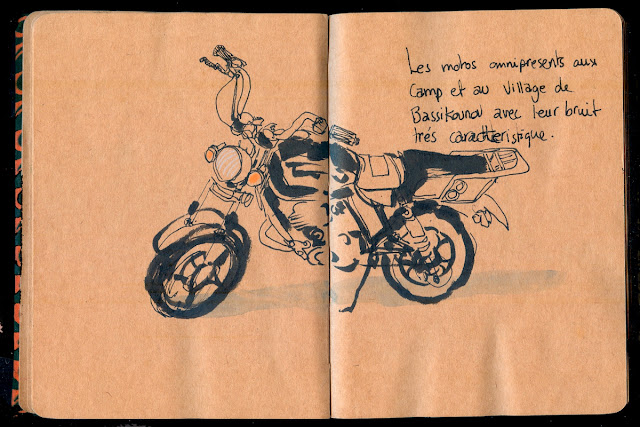 Les motos omnipresents aux
Camp et au Village de
Bassikounou avec leur bruit
trés caracteristique.